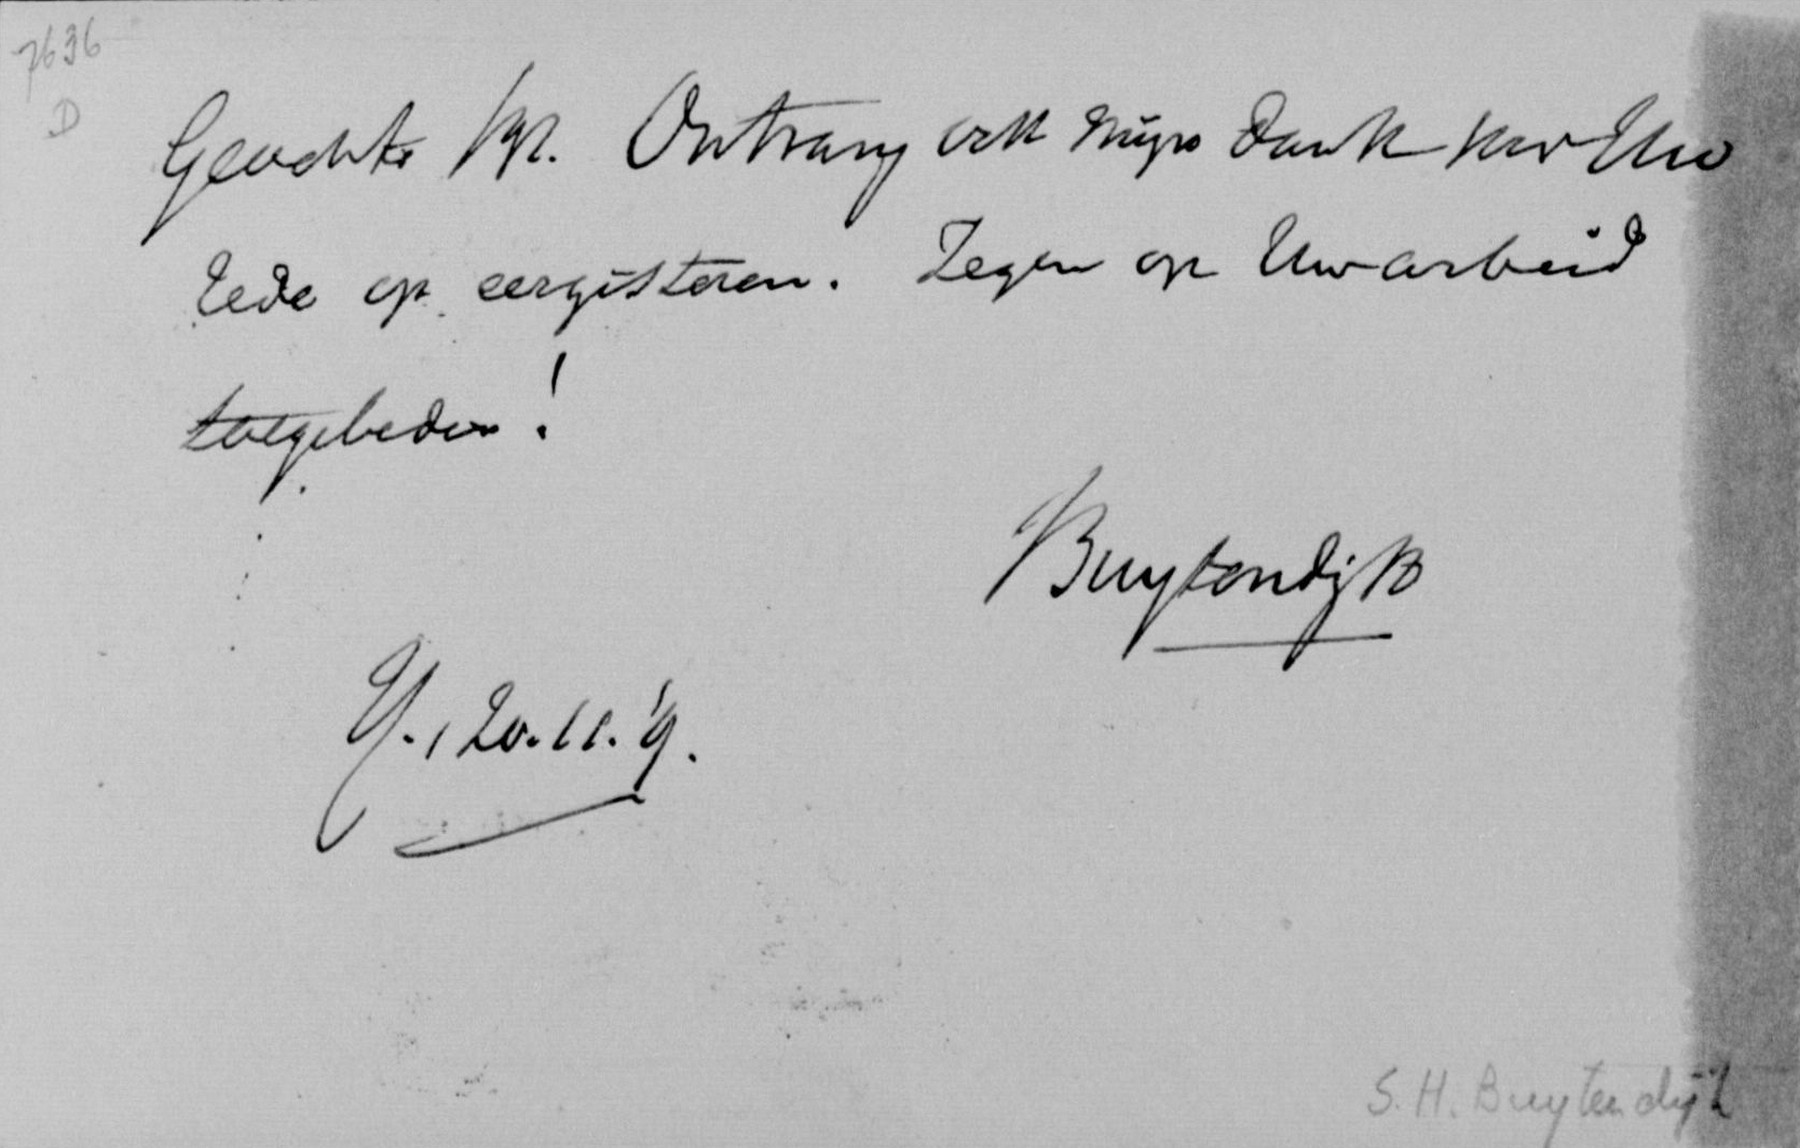 7636
D
Geachte Br. Ontvang ook mijn dank voor Uw
rede op eergisteren. Zegen op Uw arbeid
toegebeden!
Buytendijk
U., 20.11.'9.
S. H. Buytendijk